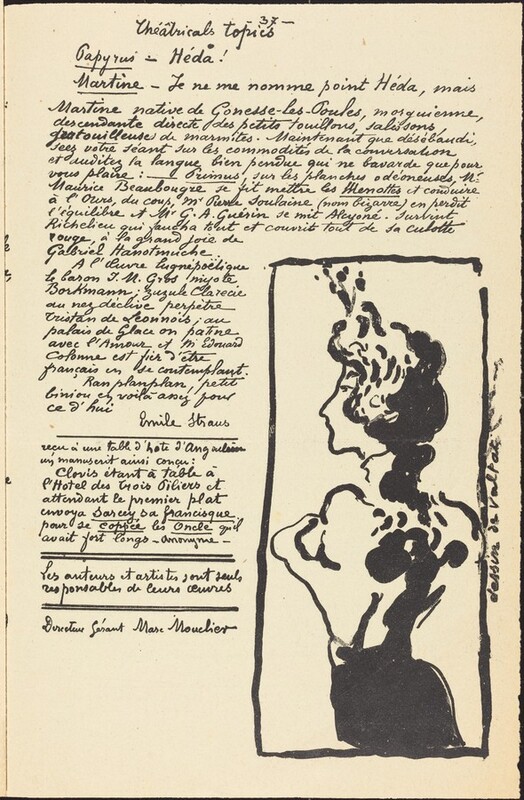 37
Théâtricals topics
Papyrus – Héda !
Martine – Je ne me nomme point Héda, mais
Martine native de Gonesse-les-Poules, morguienne,
descendante directe des petits souillons, salissons
gratouilleuse de marmites. Maintenant que désébaudi,
seez votre séant sur les commodités de la conversation
et auditez la langue bien pendue qui ne bavarde que pour
vous plaire : — Primus, sur les planches odéoneuses, Mr
Maurice Beaubougre se fit mettre les Menottes et conduire
à l'Ours, du coup, Mr Pierre Soulaine (nom bizarre) en perdit
l'équilibre et Mr G. A. Guérin se mit Akyoné. Survint
Richelieu qui faucha tout et couvrit tout de sa culotte
rouge, à la grand joie de
Gabriel Hanotmuche
A l'Œuvre lugnépoëtique
le baron J. M. Gros myote
Borkmann ; zuzule Clarecie
au nez déclive perpètre
Tristan de Léonnois ; au
palais de Glace on patine
avec l'Amour et Mr Edouard
Colonne est fier d'être
français en se contemplant.
Ran planplan, petit
biniou en voilà assez pour
ce d'hui
Emile Straus
reçu à une table d'hôte d'Angoulême
un manuscrit ainsi conçu :
Clovis étant à table à
l'Hotel des trois Piliers et
attendant le premier plat
envoya Darcey sa francisque
pour se copiée les Oncle qu'il
avait fort longs – anonyme –
Les auteurs et artistes sont seuls
responsables de leurs œuvres
Directeur Gérant Marc Mouclier
dessin de Valtat